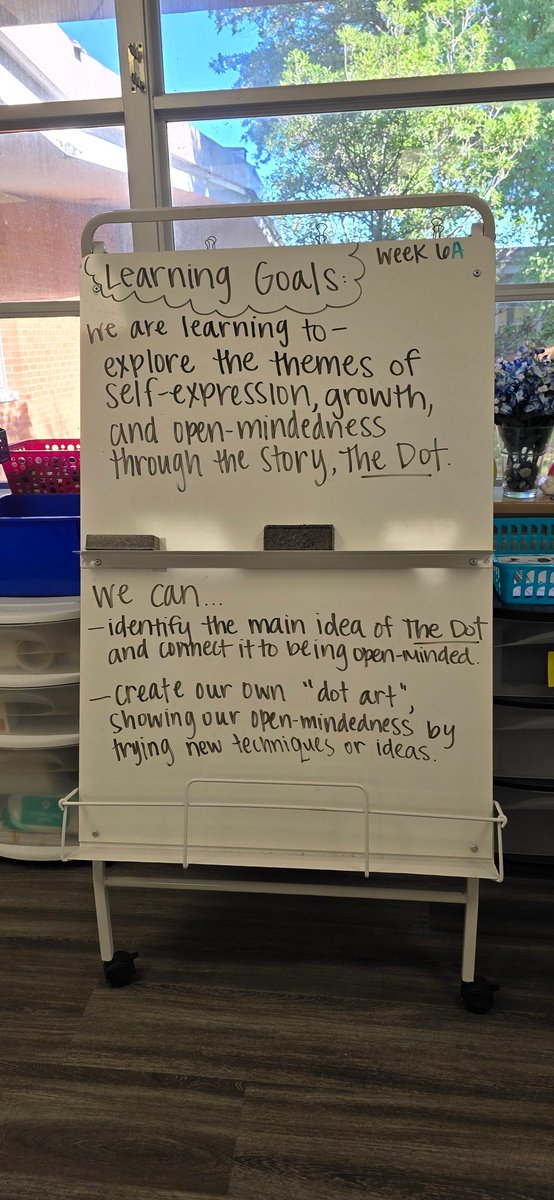 Learning Goals:
Week 6A
We are learning to-
explore the themes of
self-expression, growth,
and open-mindedness
through the story, The Dot.
We can...
-identify the main idea of The Dot
and connect it to being open-minded.
-create our own "dot art",
showing our open-mindedness by
trying new techniques or ideas.